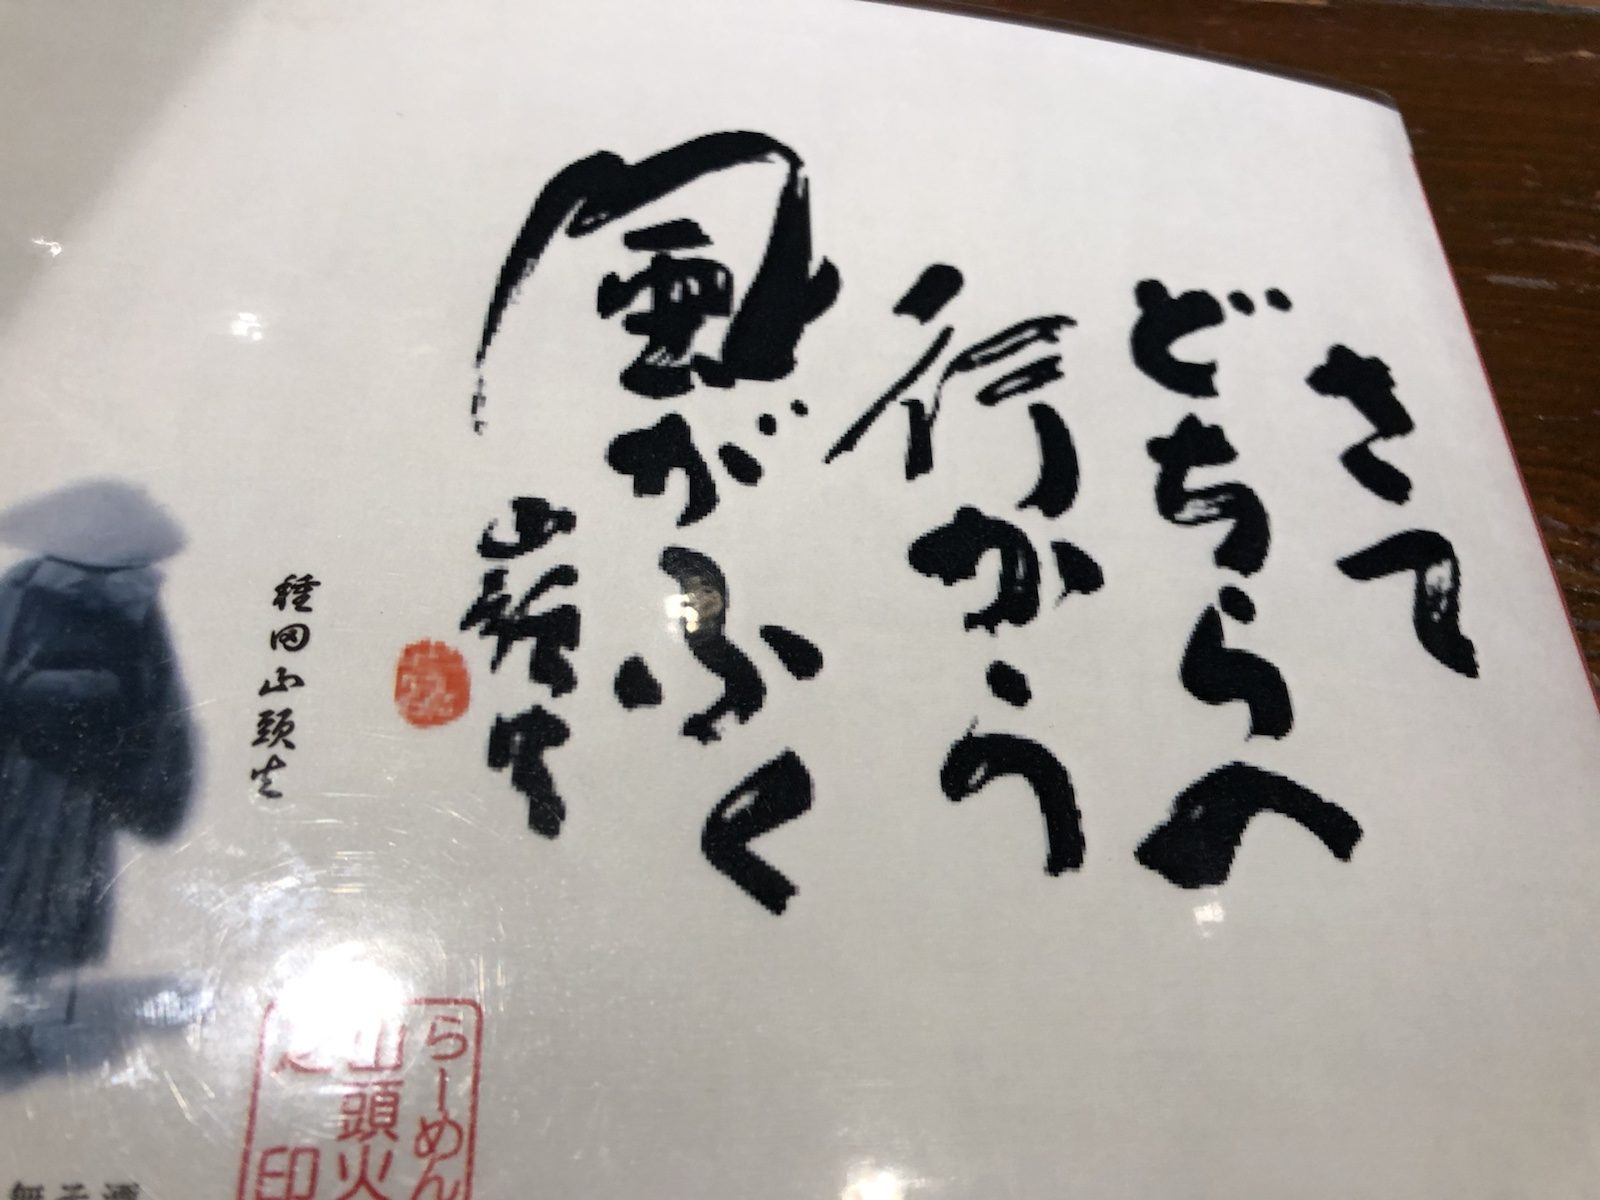 さて
どちらへ
行かう
風がふく
山頭火
種田山頭火
らーめん
山頭火
印